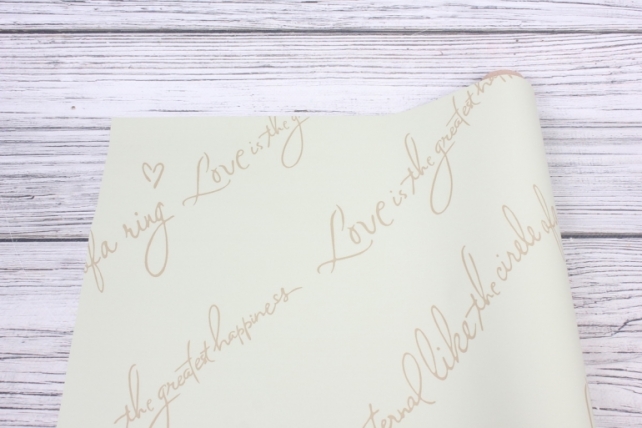 Love is the g
of a ring
Love is the greatest h
the greatest happiness
ternal like the circle of